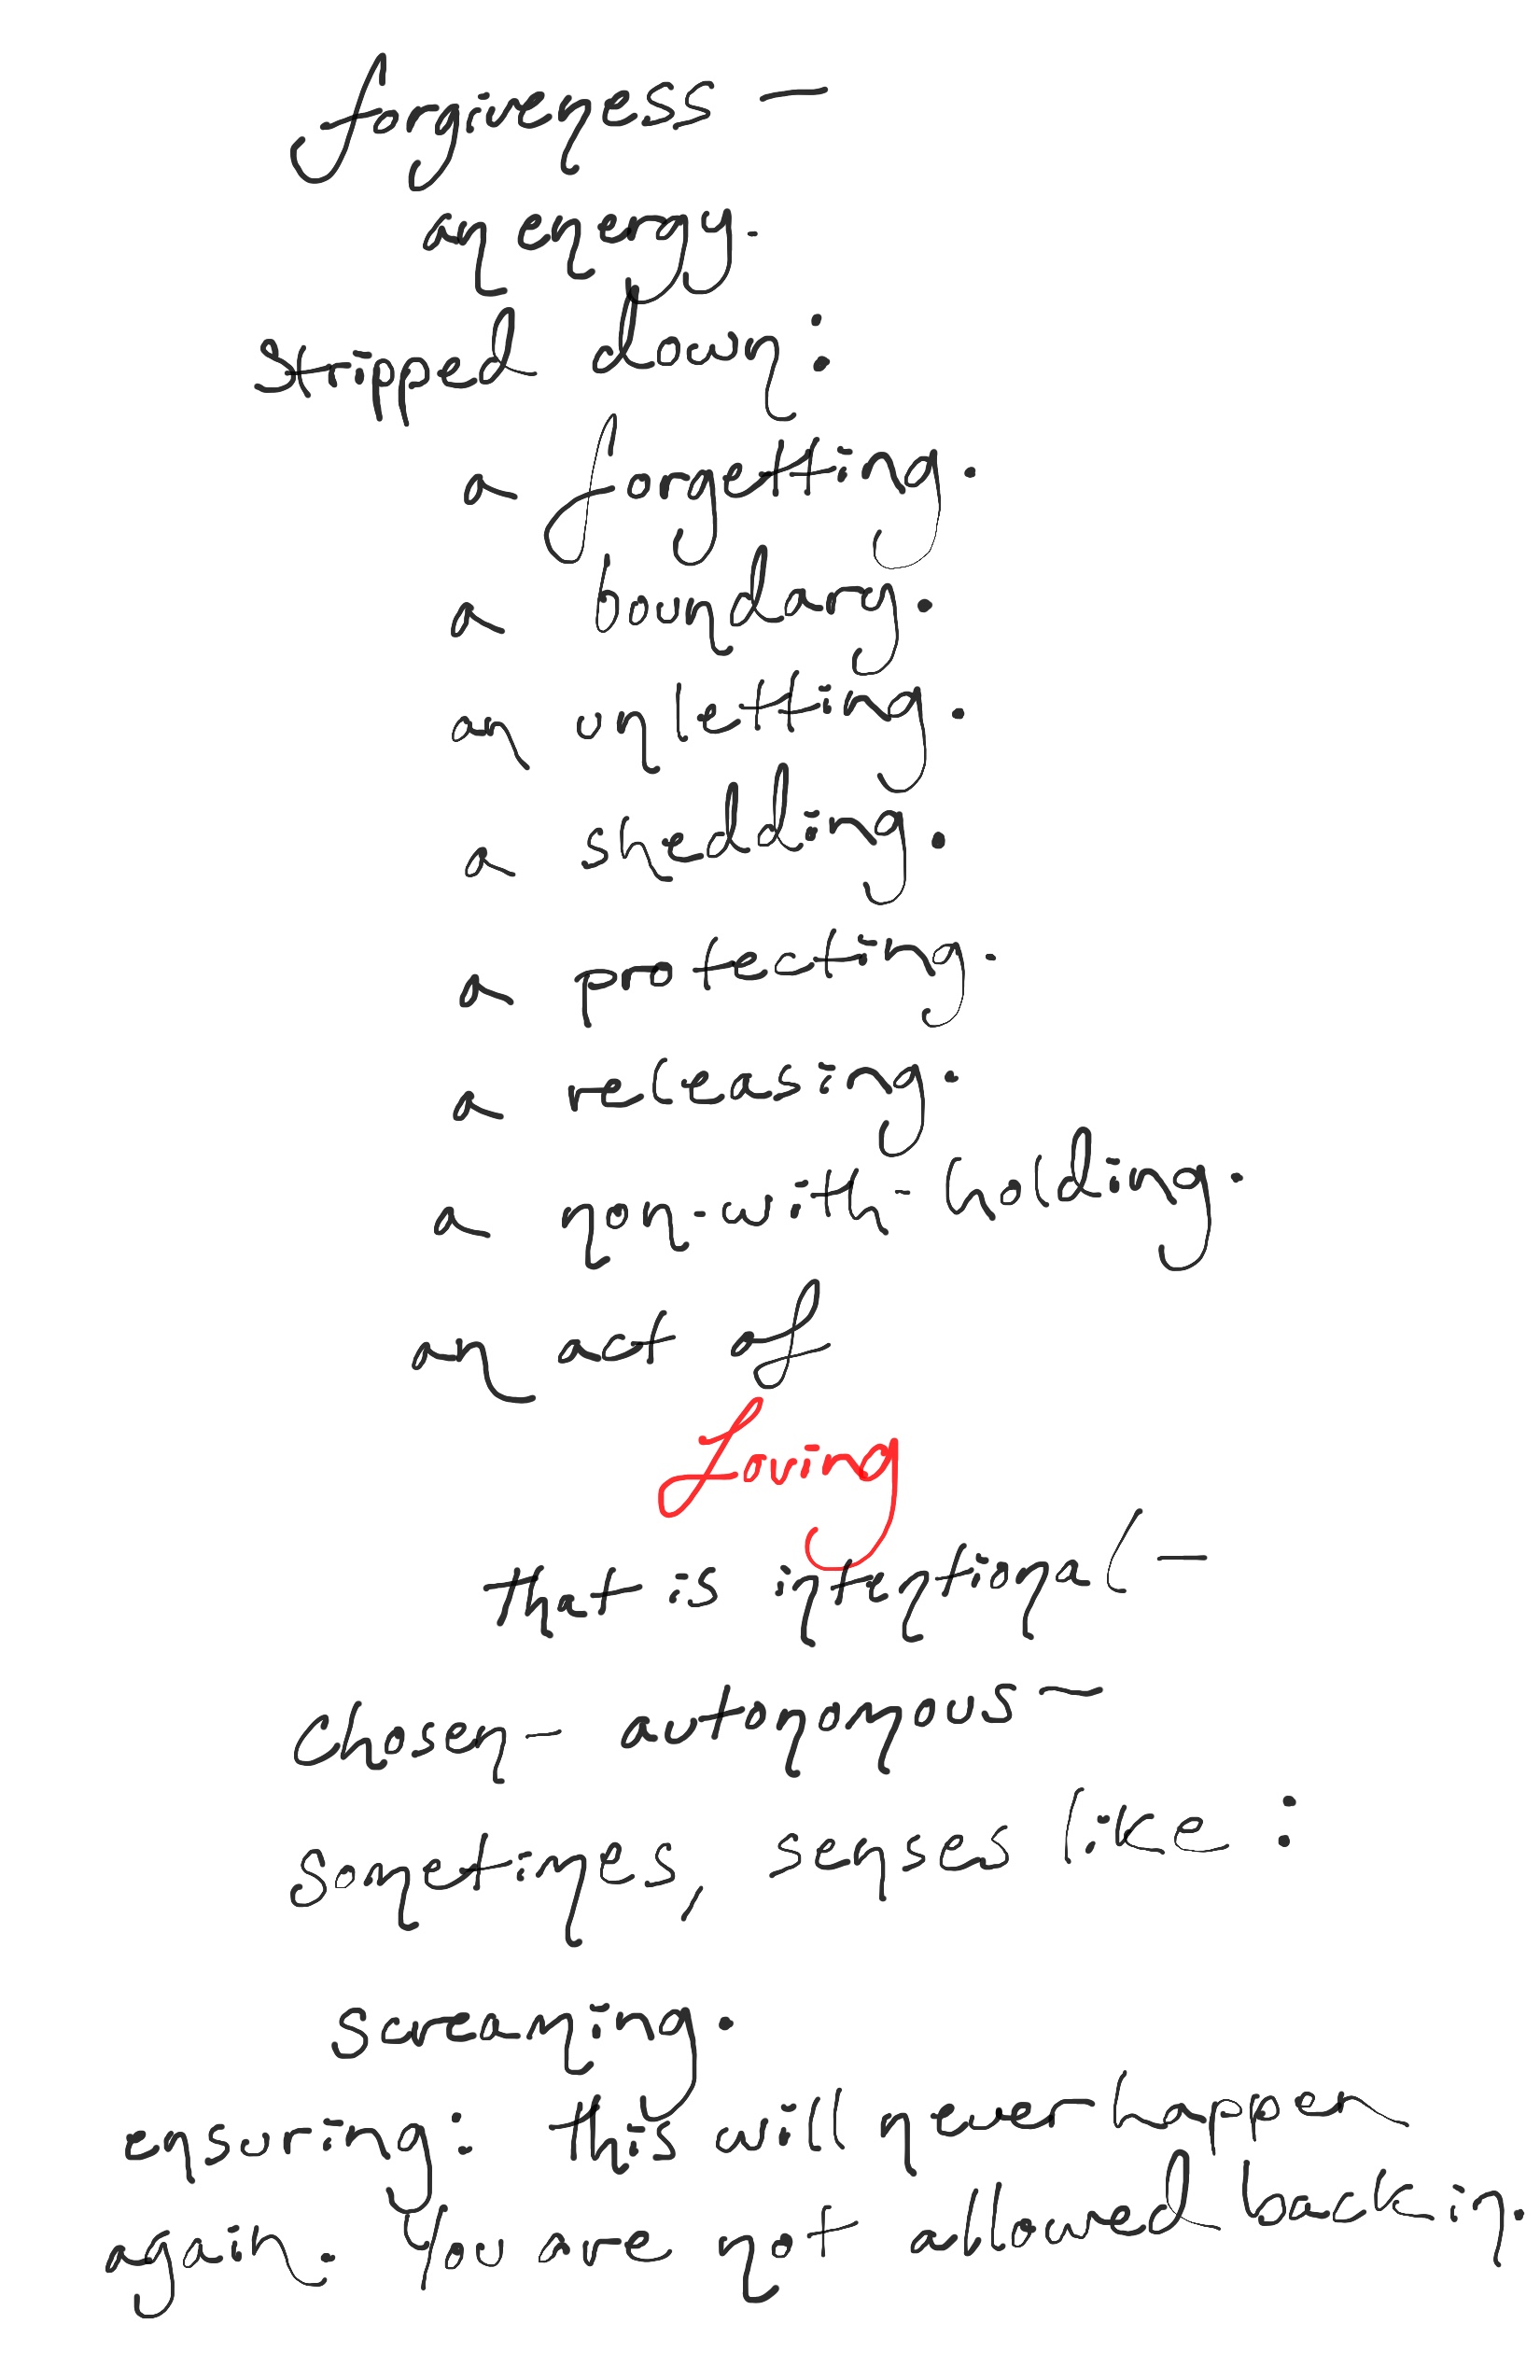 forgiveness —
an energy.
stripped down:
a forgetting.
a boundary.
an unletting.
a shedding.
a protecting.
a releasing.
a non-with-holding.
an act of
Loving
that is intentional —
chosen - autonomous —
sometimes, senses like:
screaming.
ensuring: this will never happen
again. You are not allowed back in.